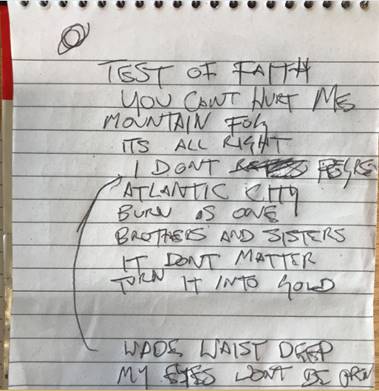 TEST OF FAITH
YOU CANT HURT ME
MOUNTAIN FOG
ITS ALL RIGHT
I DONT REGRE
ATLANTIC CITY
BURN AS ONE
BROTHERS AND SISTERS
IT DONT MATTER
TURN IT INTO GOLD
WADE WAIST DEEP
MY EYES WONT BE